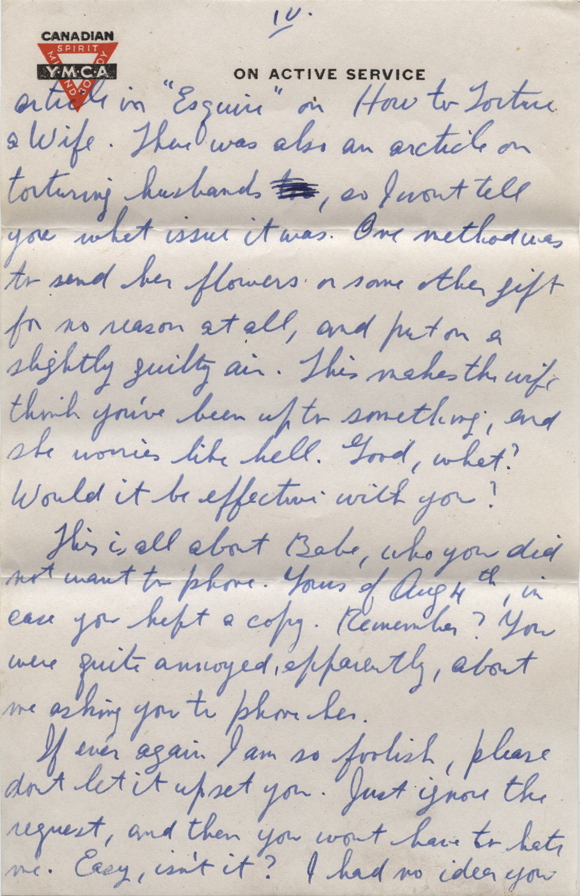 IV.
CANADIAN
SPIRIT
MIND BODY
Y·M·C·A
ON ACTIVE SERVICE
article in "Esquire" on How to Torture
a Wife. There was also an arcticle on
torturing husbands, so I wont tell
you what issue it was. One method was
to send her flowers or some other gift
for no reason at all, and put on a
slightly guilty air. This makes the wife
think you've been up to something, and
she worries like hell. Good, what?
Would it be effective with you?
This is all about Babe, who you did
not want to phone. Yours of Aug 4th, in
case you kept a copy. Remember? You
were quite annoyed, apparently, about
me asking you to phone her.
If ever again I am so foolish, please
dont let it upset you. Just ignore the
request, and then you wont have to hate
me. Easy, isn't it? I had no idea you